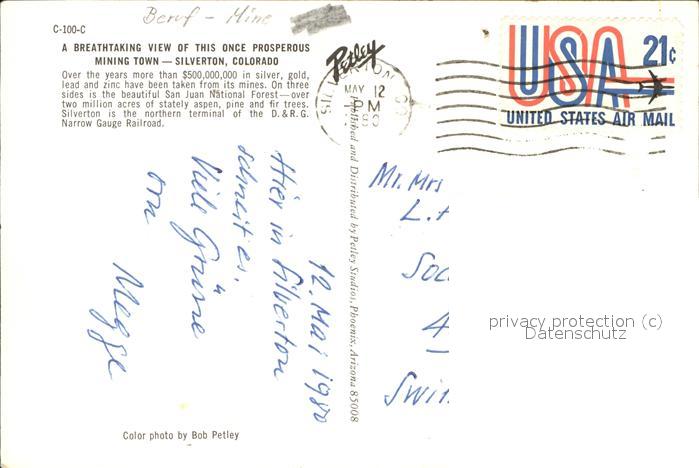 Beruf - Mine
C-100-C
A BREATHTAKING VIEW OF THIS ONCE PROSPEROUS
MINING TOWN — SILVERTON, COLORADO
Over the years more than $500,000,000 in silver, gold,
lead and zinc have been taken from its mines. On three
sides is the beautiful San Juan National Forest—over
two million acres of stately aspen, pine and fir trees.
Silverton is the northern terminal of the D. & R. G.
Narrow Gauge Railroad.
12. Mai 1980
Hier in Silverton
schneit es.
Viele Grüsse
von
Megge
Color photo by Bob Petley
Petley
Published and Distributed by Petley Studios, Phoenix, Arizona 85008
MAY 12
PM
USA 21c
UNITED STATES AIR MAIL
Mr. Mrs
L.
Soc
4
Swit
privacy protection (c)
Datenschutz